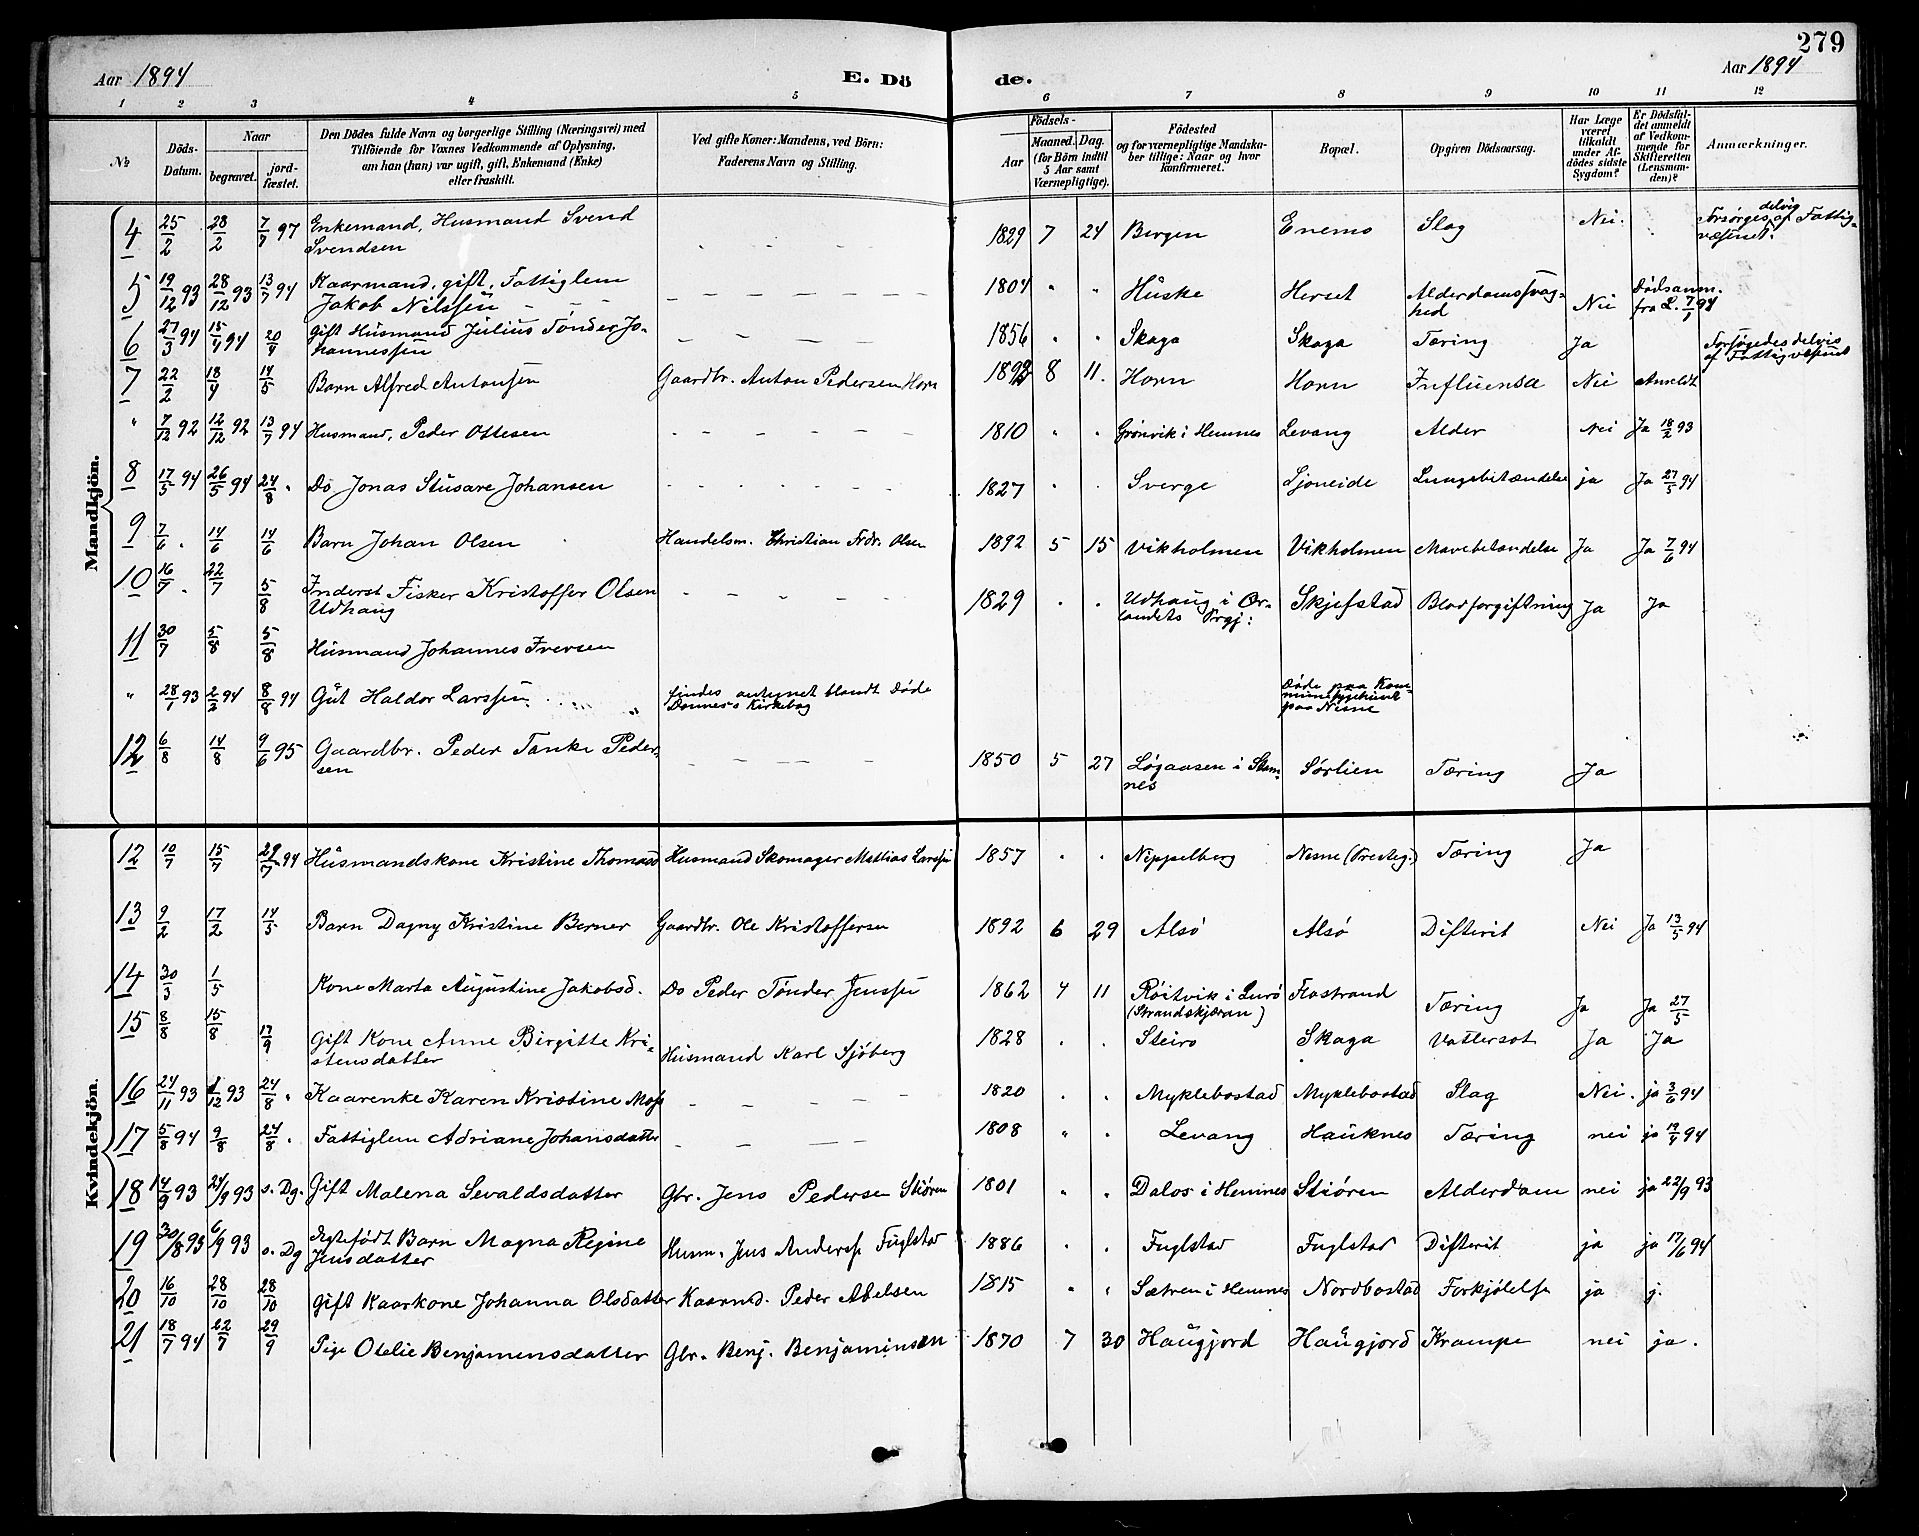 279
Aar 1894 E. Dö de. Aar 1894
1 2 3 4 5 6 7 8 9 10 11 12
№ Döds-Datum. Naar begravet. jordfæstet. Den Dödes fulde Navn og borgerlige Stilling (Næringsvei) med Tilföiende for Voxnes Vedkommende af Oplysning, om han (hun) var ugift, gift, Enkemand (Enke) eller fraskilt. Ved gifte Koner: Mandens, ved Börn: Faderens Navn og Stilling. Födsels- Aar Maaned. Dag. (for Börn indtil 5 Aar samt Værnepligtige). Födested og for værnepligtige Mandskaber tillige: Naar og hvor konfirmeret. Bopæl. Opgiven Dödsaarsag. Har Læge været tilkaldt under Afdödes sidste Sygdom? Er Dödsfaldet anmeldt af Vedkommende for Skifteretten (Lensmanden)? Anmærkninger.
Mandkjön.
4 25/2 28/2 7/7 97 Enkemand, Husmand Svend Svendsen 1829 7 24 Bergen Enemo Slag Nei. Forsørges delvig af Fattigvæsenet.
5 19/12 93 28/12 93 13/7 94 Kaarmand, gift, Fattiglem Jakob Nilssen — 1804 " " Huske Herset Alderdomssvaghed Nei Dødsanm. fra L. 7/1 94
6 27/3 94 15/4 94 20/4 Gift Husmand Julius Tønder Johannessen — 1856 " " Skaga Skaga Tæring Ja Forsøgedes delvis af Fattigvæsenet
7 22/2 18/4 14/5 Barn Alfred Antonsen Gaardbr. Anton Pedersen Horn 1892 8 11. Horn Horn Influensa Nei Anmeldt
" 7/12 92 12/12 92 13/7 94 Husmand, Peder Ottesen 1810 " " Grønvik i Hemnes Levang Alder Nei Ja 18/2 93
8 17/5 94 26/5 94 24/8 " Do Jonas Stusare Johansen 1827 " " Sverge Sjoneide Lungebetændelse ja Ja 27/5 94
9 7/6 . 14/6 14/6 Barn Johan Olsen Handelsm. Christian Frdr. Olsen 1892 5 15 Vikholmen Vikholmen Mavebetændelse Ja Ja 7/6 94
10 16/7 . 22/7 5/8 Inderst Fisker Kristoffer Olsen Udhaug 1829 " " Udhaug i Ørlandets Prgj: Skjefstad Blodforgiftning Ja Ja
11 30/7 5/8 5/8 Husmand Johannes Iversen
" 28/1 93 2/2 94 8/8 94 Gut Haldor Larssen findes antegnet blandt Døde Dønnes's Kirkebog Døde paa Kommunesygehuset paa Nesne
12 6/8 14/8 9/6 95 Gaardbr. Peder Tanke Pedersen — 1850 5 27 Løgaasen i Stamnes Sørlien Tæring Ja
Kvindekjön.
12 10/7 15/7 29/7 94 Husmandskone Kristine Thomasd Husmand Skomager Mathias Larssen 1857 " " Nippelberg Nesne (Presteg.) Tæring Ja
13 9/2 17/2 14/5 Barn Dagny Kristine Berner Gaardbr. Ole Kristoffersen 1892 6 29 Alsø Alsø Difterit Nei Ja 13/5 94
14 30/3 1/5 Kone Marta Augustine Jakobsd. Do Peder Tønder Jenssen 1862 4 11 Røitvik i Lurø (Strandskjæran) Flostrand Tæring Ja Ja 27/5
15 8/8 15/8 17/9 Gift Kone Anne Birgitte Kristensdatter Husmand Karl Sjøberg 1828 . . Steiro Skaga Vattersot Ja Ja
16 24/11 93 1/12 93 24/8 " Kaarenke Karen Kristine Mos 1820 . . Myklebostad Myklebostad Slag Nei. ja 3/6 94
17 5/8 94 9/8 24/8 . Fattiglem Adriane Johansdatter 1808 " . Levang Hauknes Tæring nei ja 19/4 94
18 14/9 93 24/9 93 s. Dg. Gift Malena Sevaldsdatter Gbr. Jens Pedersen Stiøren 1801 " " Dalos i Hemnes Stiøren Alderdom nei ja 22/9 93
19 30/8 93 6/9 93 s. Dg Ægtefødt Barn Magna Regine Jensdatter Husm. Jens Anders Fuglstad 1886 . . Fuglstad Fuglstad Difterit ja ja 17/6 94
20 16/10 28/10 28/10 Gift Kaarkone Johanna Olsdatter Kaarmd. Peder Abelsen 1815 " " Sætren i Hemnes Nordbostad Forkjølelse ja j.
21 18/7 94 22/7 29/9 Pige Otelie Benjamensdatter Gbr. Benj. Benjaminsen 1870 7 30 Haugjord Haugjord Krampe nei ja.